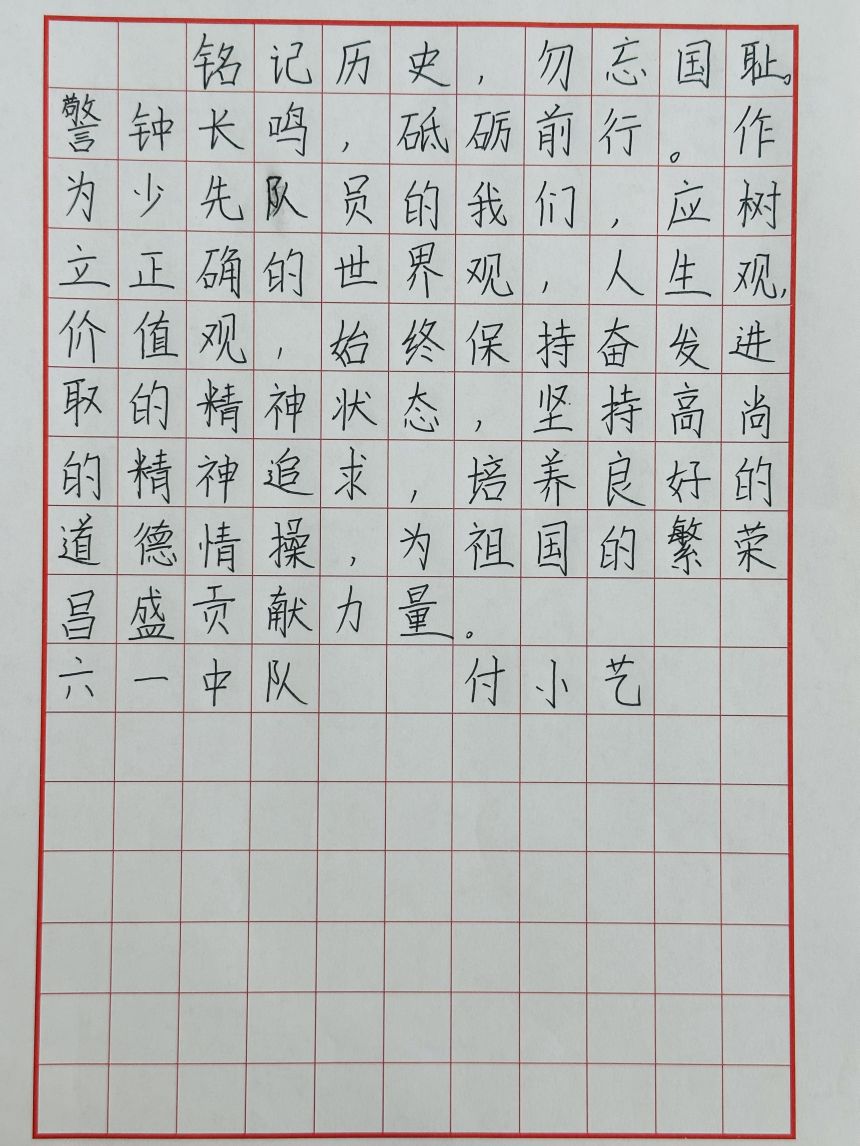 铭记历史，勿忘国耻。
警钟长鸣，砥砺前行。作
为少先队员的我们，应树
立正确的世界观，人生观，
价值观，始终保持奋发进
取的精神状态，坚持高尚
的精神追求，培养良好的
道德情操，为祖国的繁荣
昌盛贡献力量。
六一中队 付小艺